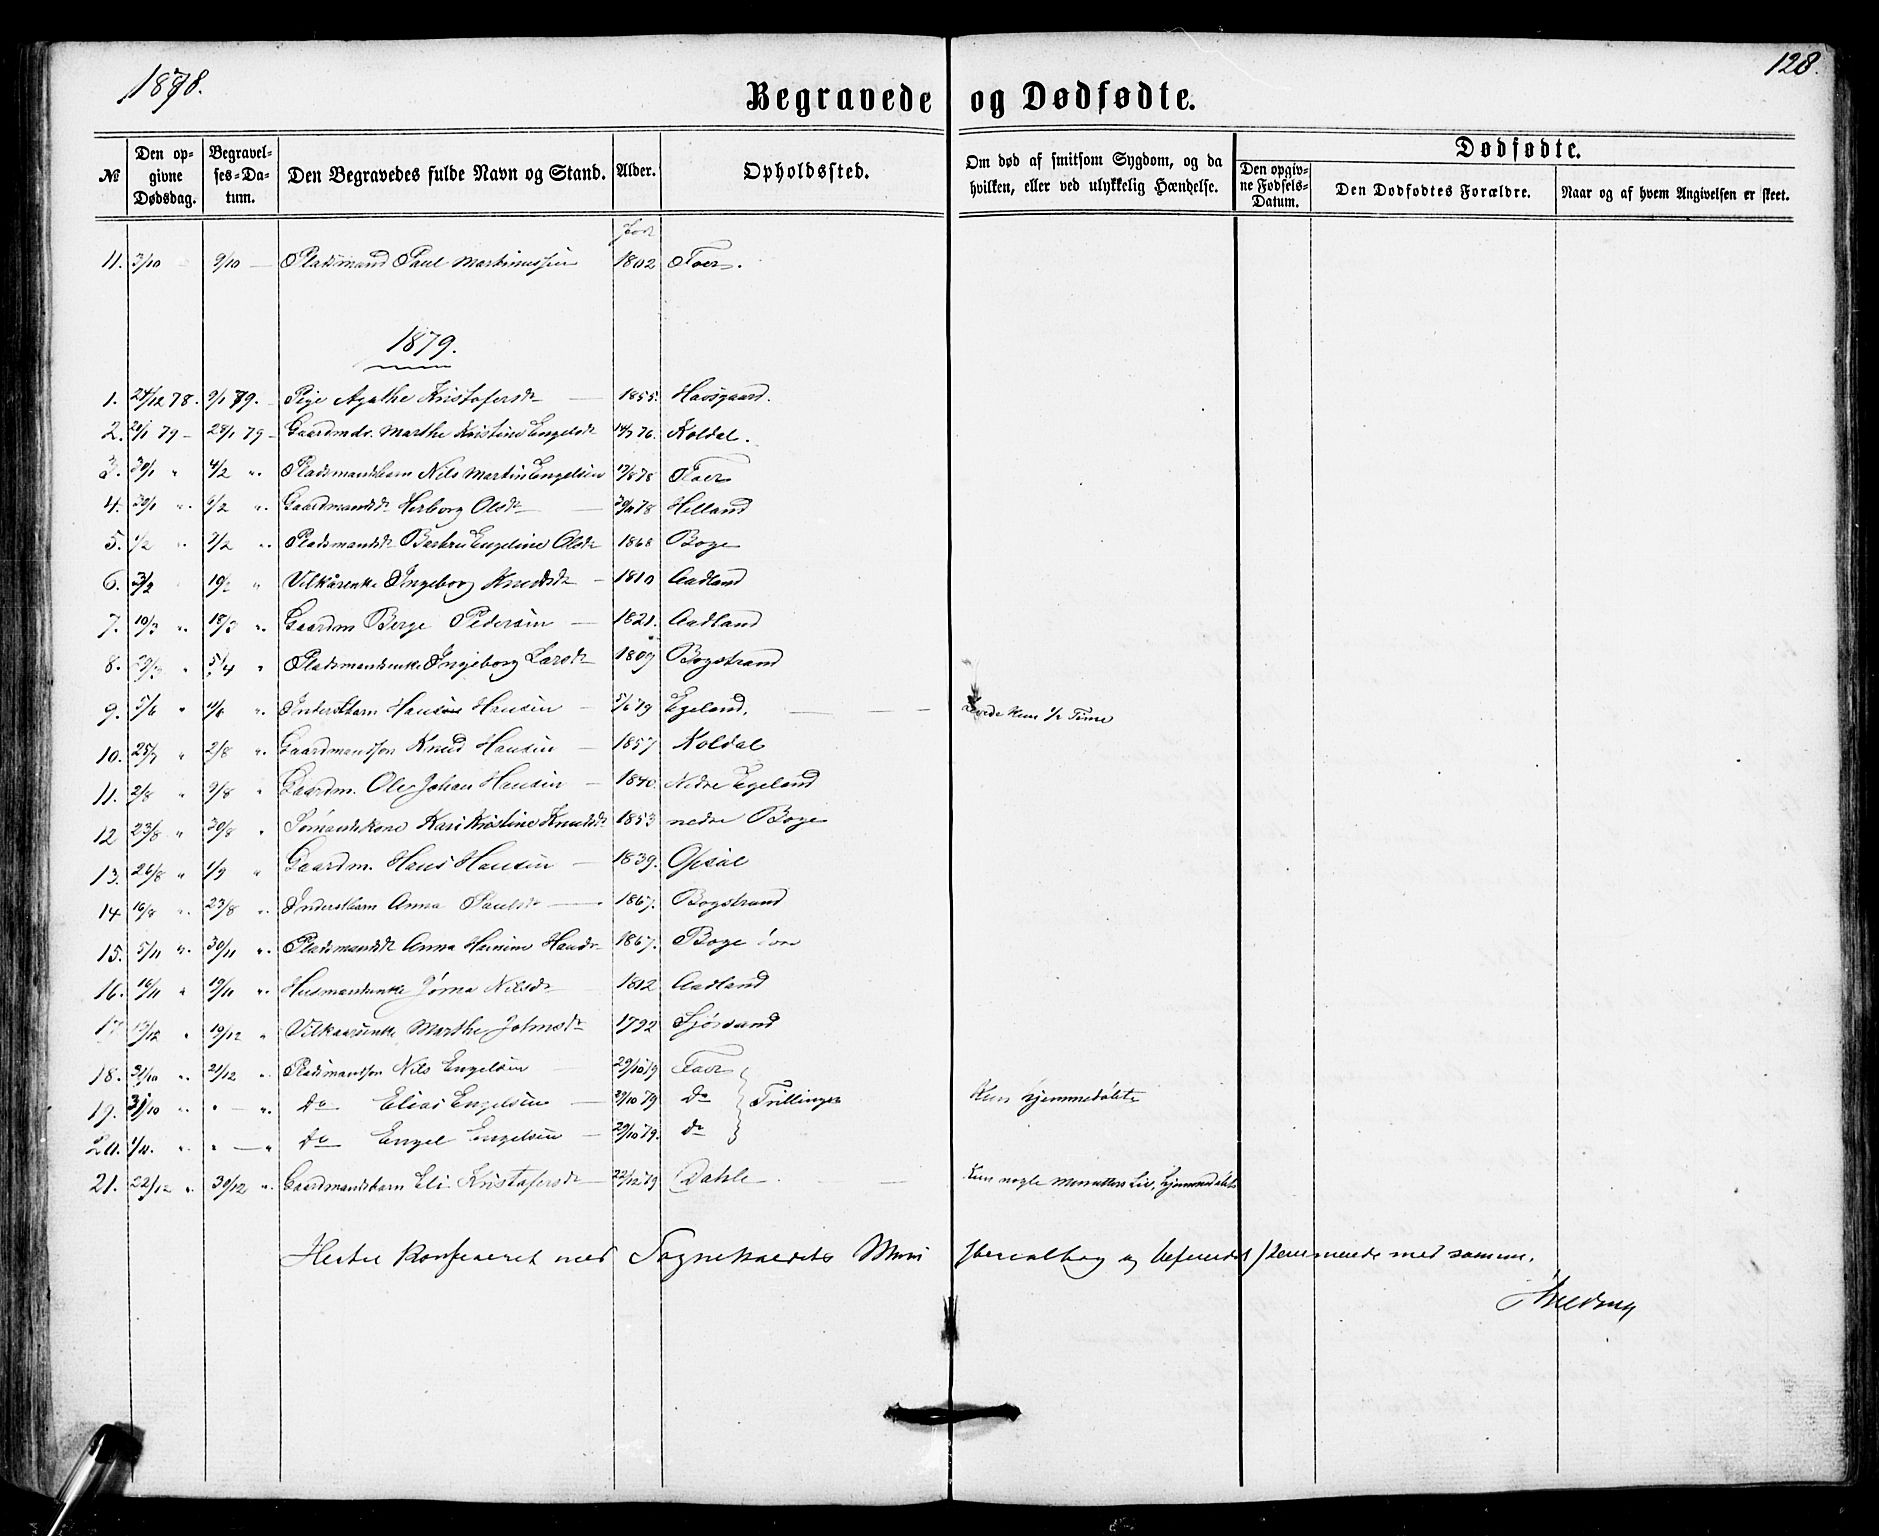 1878.
128.
Begravede og Dødfødte.
№ Den opgivne Dødsdag. Begravelses-Datum. Den Begravedes fulde Navn og Stand. Alder. Opholdssted. Om død af smitsom Sygdom, og da hvilken, eller ved ulykkelig Hændelse. Dødfødte. Den opgivne Fødsels-Datum. Den Dødfødtes Forældre. Naar og af hvem Angivelsen er skeet.
11. 3/10 9/10 Pladsmand Paul Martinussen 1802 Foer.
1879.
1. 24/12 78. 9/1 79. Pige Agathe Kristofersdr 1855. Haasgaard.
2. 79 28/1 79 Gaardmdr. Marthe Kristine Engelsdr 76. Koldal.
3. 30/1 " 4/2 " Pladsmandsbarn Nils Martin Engelsen 17/8 78 Foer
4. 30/1 " 6/2 " Gaardmandsdr Herborg Olsdr 78 Helland
5. 1/2 " 9/2 " Pladsmandsdr Engeline Olsdr 1868 Boge
6. 3/2 " " Vilkårenke Ingeborg Knudsdr 1810 Aadland
7. 10/3 " 18/3 " Gaardm Berge Pedersen 1821. Aadland
8. 29/3 " 5/4 " Pladsmandsenke Ingeborg Larsdr 1809 Bogstrand
9. 5/6 " " Inderstbarn Hansen 5/6 79 Egeland. Levede kun 1/2 Time
10. 25/7 " 2/8 " Gaardmandssøn Knud Hansen 1857 Koldal
11. 2/8 " 9/8 " Gaardm. Ole Johan Hansen 1840. Nedre Egeland
12 23/8 " 30/8 " Sømandskone Kari Kristine Knudsdr 1853 nedre Boge
13. 26/8 " 1/9 " Gaardm. Hans Hansen 1839. Opsal
14 16/8 " 23/8 " Inderstbarn Anna Paulsdr 1867. Bogstrand
15. 5/11 " 30/11 " Pladsmandsdr Anna 1867. Boge
16. 16/11 " 19/11 " Husmandsenke Jørna Nilsdr 1812 Aadland
17 " 19/12 " Vilkaarsenke Marthe Johnsdr 1792 Sjørsand
18. 31/10 " 21/12 " Pladsmandssøn Nils Engelsen 29/10 79 Foer
19. 31/10 " " — " Do Elias Engelsen 29/10 79 Do Trillinger Kun hjemmedøbte
20. 1/11. " " — " Do Engel Engelsen 29/10 79. Do
21. 22/12 " 30/12 " Gaardmandsbarn Eli Kristofersdr 22/12 79 Dahle Kun nogle Minutters Liv, hjemmedøbt
Hertil konfereret med Sognekaldets Ministerialbog og befundet stemmende med samme.